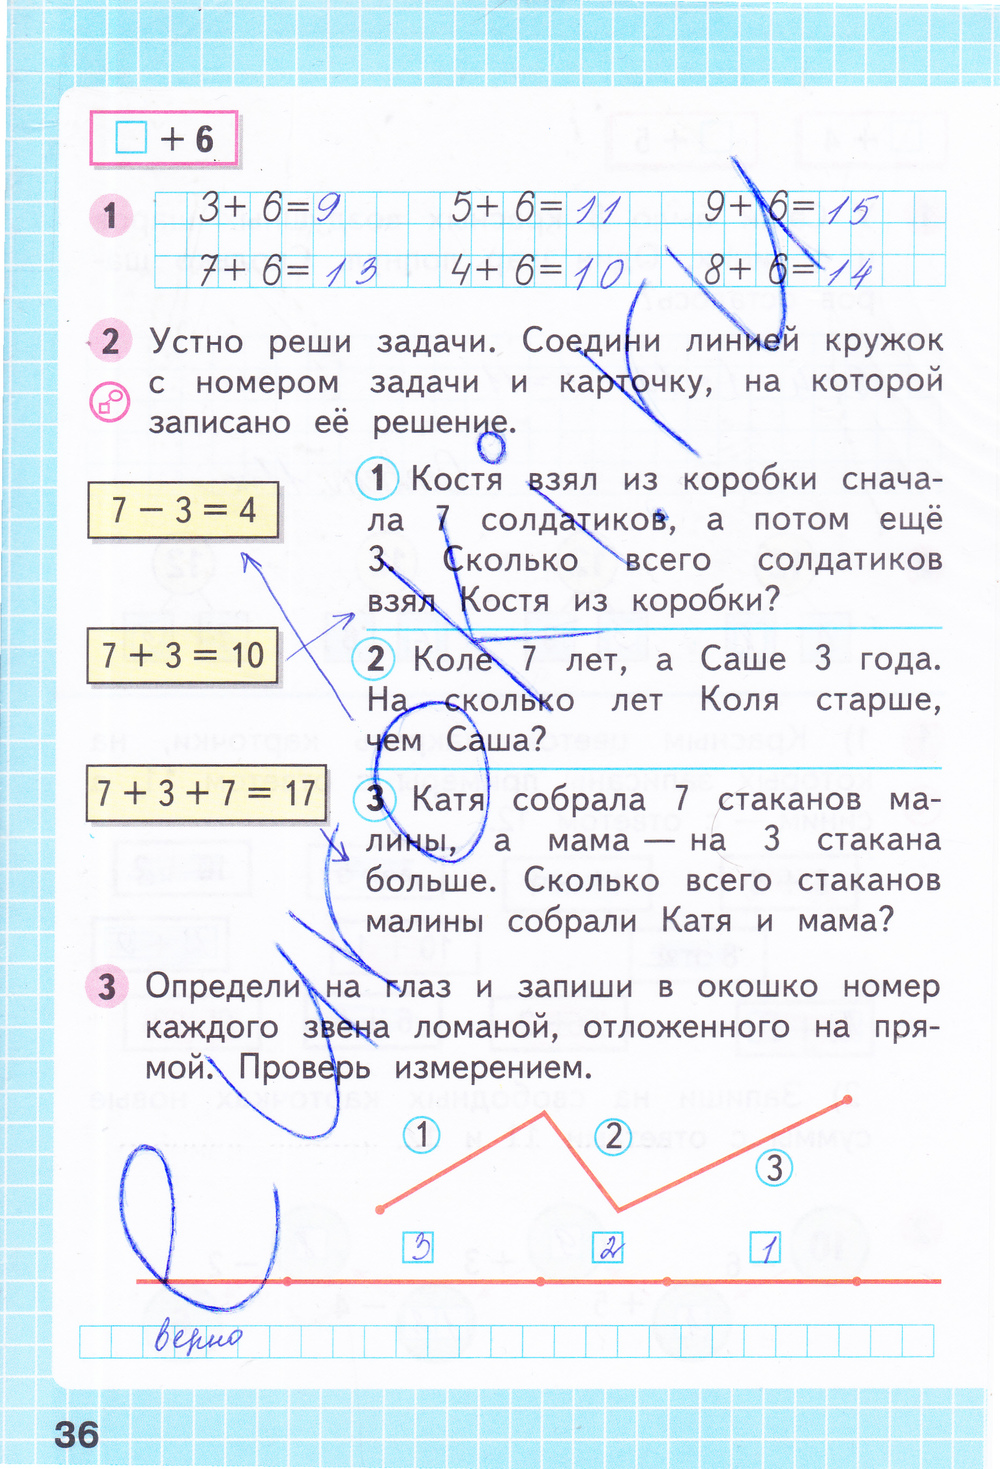 □ + 6
1
3+6=9 5+6=11 9+6=15
7+6=13 4+6=10 8+6=14
2 Устно реши задачи. Соедини линией кружок
с номером задачи и карточку, на которой
записано её решение.
7 − 3 = 4
7 + 3 = 10
7 + 3 + 7 = 17
1 Костя взял из коробки снача-
ла 7 солдатиков, а потом ещё
3. Сколько всего солдатиков
взял Костя из коробки?
2 Коле 7 лет, а Саше 3 года.
На сколько лет Коля старше,
чем Саша?
3 Катя собрала 7 стаканов ма-
лины, а мама — на 3 стакана
больше. Сколько всего стаканов
малины собрали Катя и мама?
3 Определи на глаз и запиши в окошко номер
каждого звена ломаной, отложенного на пря-
мой. Проверь измерением.
1 2 3
3 2 1
верно
36